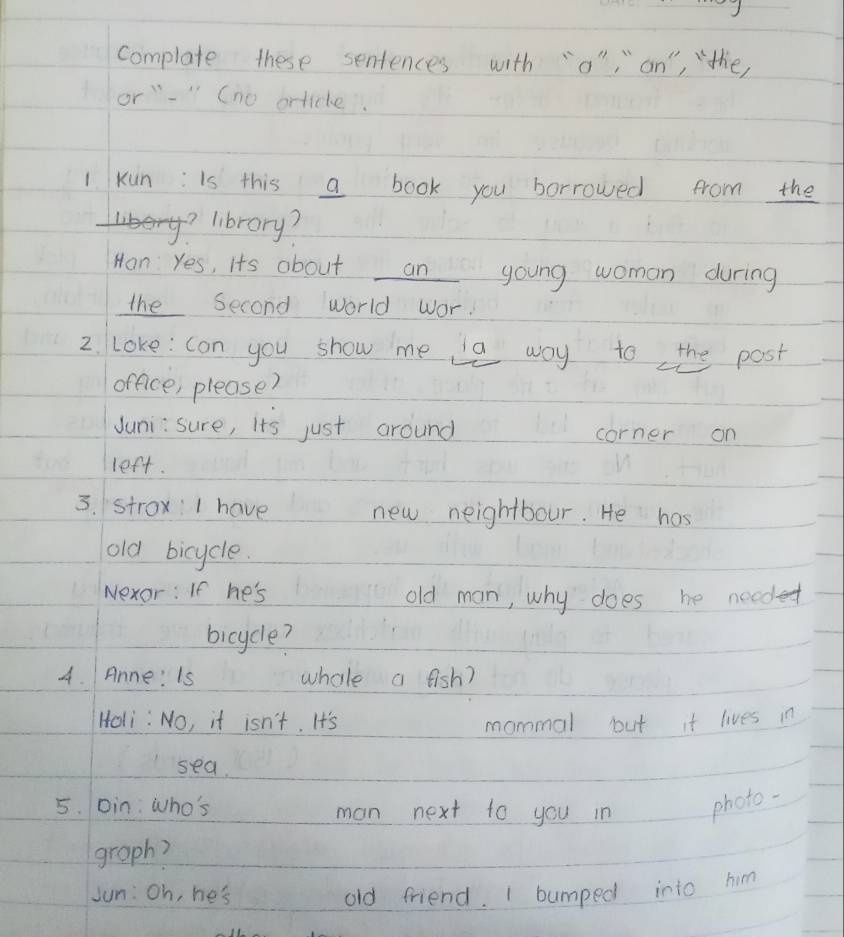 Complate these sentences with "a", "an", "the,
or "-" (no article.
1 Kun : Is this a book you borrowed from the
libery? library?
Han: Yes, its about an young woman during
the Second World War.
2. Loke: Can you show me a way to the post
office, please?
Juni: sure, It's just around corner on
left.
3. Strax: I have new neightbour. He has
old bicycle.
Nexar: If he's old man, why does he needed
bicycle?
4. Anne: Is whale a fish?
Holi: No, it isn't. It's mammal but it lives in
sea.
5. Din: Who's man next to you in photo-
graph?
Jun: Oh, he's old friend. I bumped into him